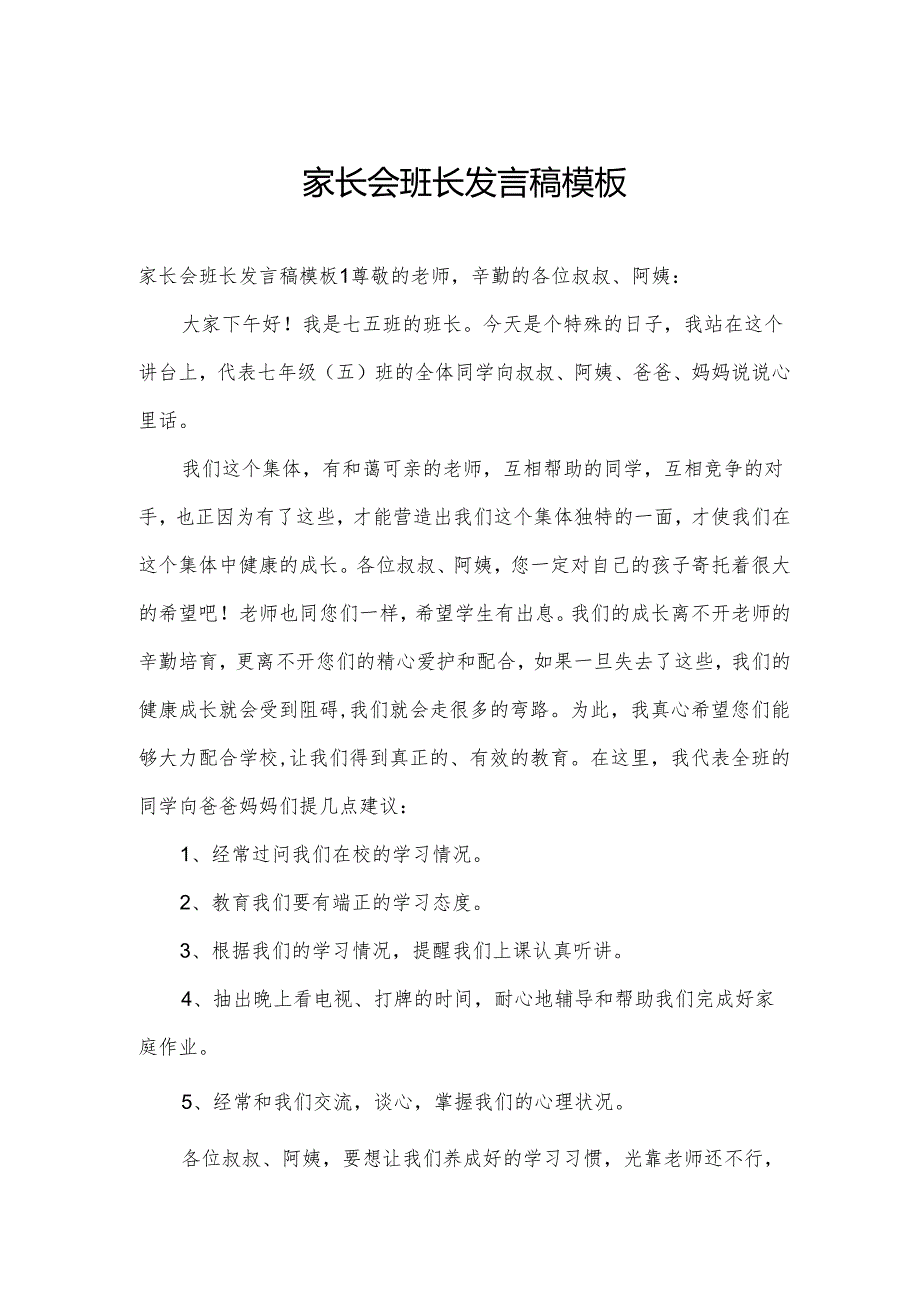 家长会班长发言稿模板
家长会班长发言稿模板1尊敬的老师，辛勤的各位叔叔、阿姨：
大家下午好！我是七五班的班长。今天是个特殊的日子，我站在这个
讲台上，代表七年级（五）班的全体同学向叔叔、阿姨、爸爸、妈妈说说心
里话。
我们这个集体，有和蔼可亲的老师，互相帮助的同学，互相竞争的对
手，也正因为有了这些，才能营造出我们这个集体独特的一面，才使我们在
这个集体中健康的成长。各位叔叔、阿姨，您一定对自己的孩子寄托着很大
的希望吧！老师也同您们一样，希望学生有出息。我们的成长离不开老师的
辛勤培育，更离不开您们的精心爱护和配合，如果一旦失去了这些，我们的
健康成长就会受到阻碍,我们就会走很多的弯路。为此，我真心希望您们能
够大力配合学校,让我们得到真正的、有效的教育。在这里，我代表全班的
同学向爸爸妈妈们提几点建议：
1、经常过问我们在校的学习情况。
2、教育我们要有端正的学习态度。
3、根据我们的学习情况，提醒我们上课认真听讲。
4、抽出晚上看电视、打牌的时间，耐心地辅导和帮助我们完成好家
庭作业。
5、经常和我们交流，谈心，掌握我们的心理状况。
各位叔叔、阿姨，要想让我们养成好的学习习惯，光靠老师还不行，